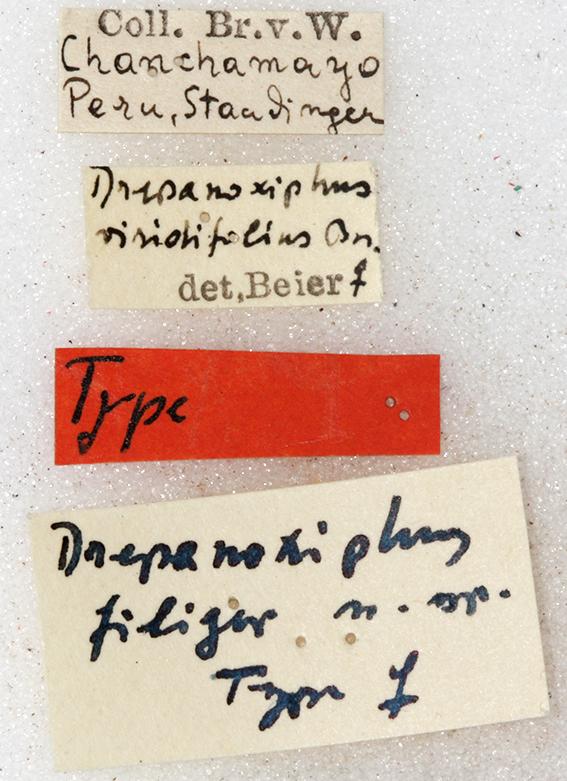 Coll. Br.v.W.
Chanchamayo
Peru, Staudinger
Drepanoxiphus
viridifolius Br.
det. Beier ♀
Type
Drepanoxiphus
filiger n. sp.
Type ♀